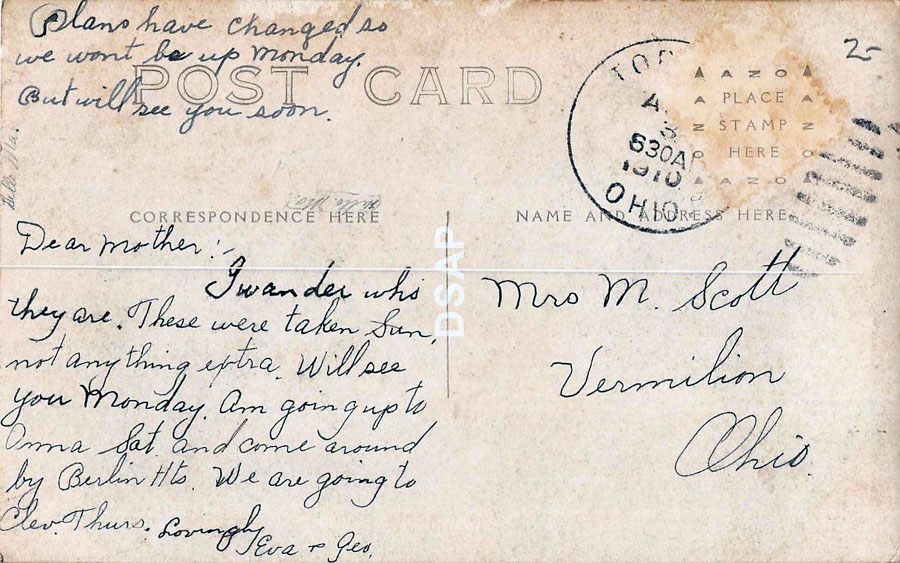 Plans have changed so
we wont be up Monday.
But will see you soon.
POST CARD
CORRESPONDENCE HERE
NAME AND ADDRESS HERE
AZO
PLACE
STAMP
HERE
AZO
630A
1910
OHIO
2-
Dear Mother:-
I wander who
they are. These were taken Sun,
not anything extra. Will see
you Monday. Am going up to
Anna Sat. and come around
by Berlin Hts. We are going to
Clev. Thurs. Lovingly
Eva + Geo.
DSAP
Mrs M. Scott
Vermilion
Ohio.